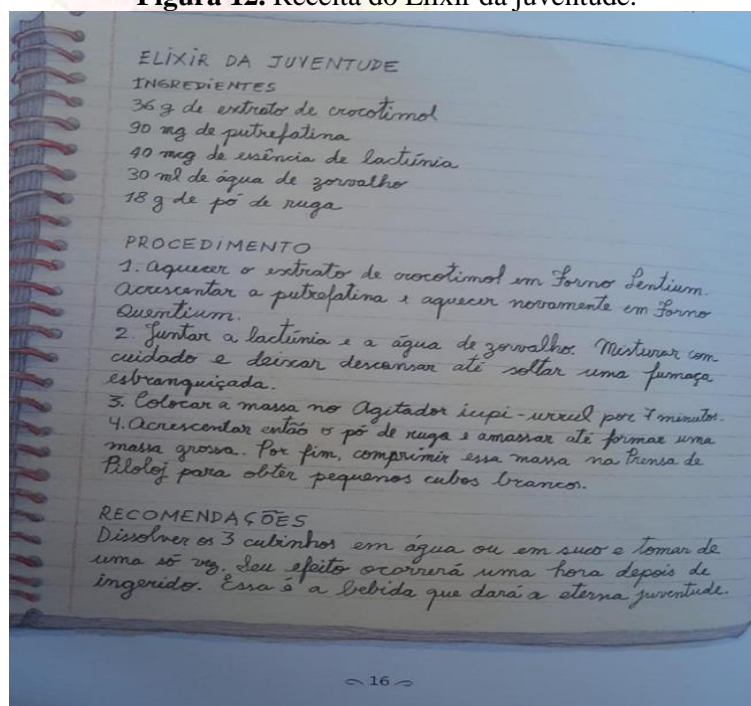 Figura 12. Receita do Elixir da juventude.
ELIXIR DA JUVENTUDE
INGREDIENTES
36 g de extrato de crocotimol
90 mg de putrefatina
40 mcg de essência de lactúnia
30 ml de água de zorvalho
18 g de pó de ruga
PROCEDIMENTO
1. Aquecer o extrato de crocotimol em Forno Lentium.
Acrescentar a putrefatina e aquecer novamente em Forno
Quentium.
2. Juntar a lactúnia e a água de zorvalho. Misturar com
cuidado e deixar descansar até soltar uma fumaça
esbranquiçada.
3. Colocar a massa no Agitador icupi-urrul por 7 minutos.
4. Acrescentar então o pó de ruga e amassar até formar uma
massa grossa. Por fim, comprimir essa massa na Prensa de
Piloloj para obter pequenos cubos brancos.
RECOMENDAÇÕES
Dissolver os 3 cubinhos em água ou em suco e tomar de
uma só vez. Seu efeito ocorrerá uma hora depois de
ingerido. Essa é a bebida que dará a eterna juventude.
16